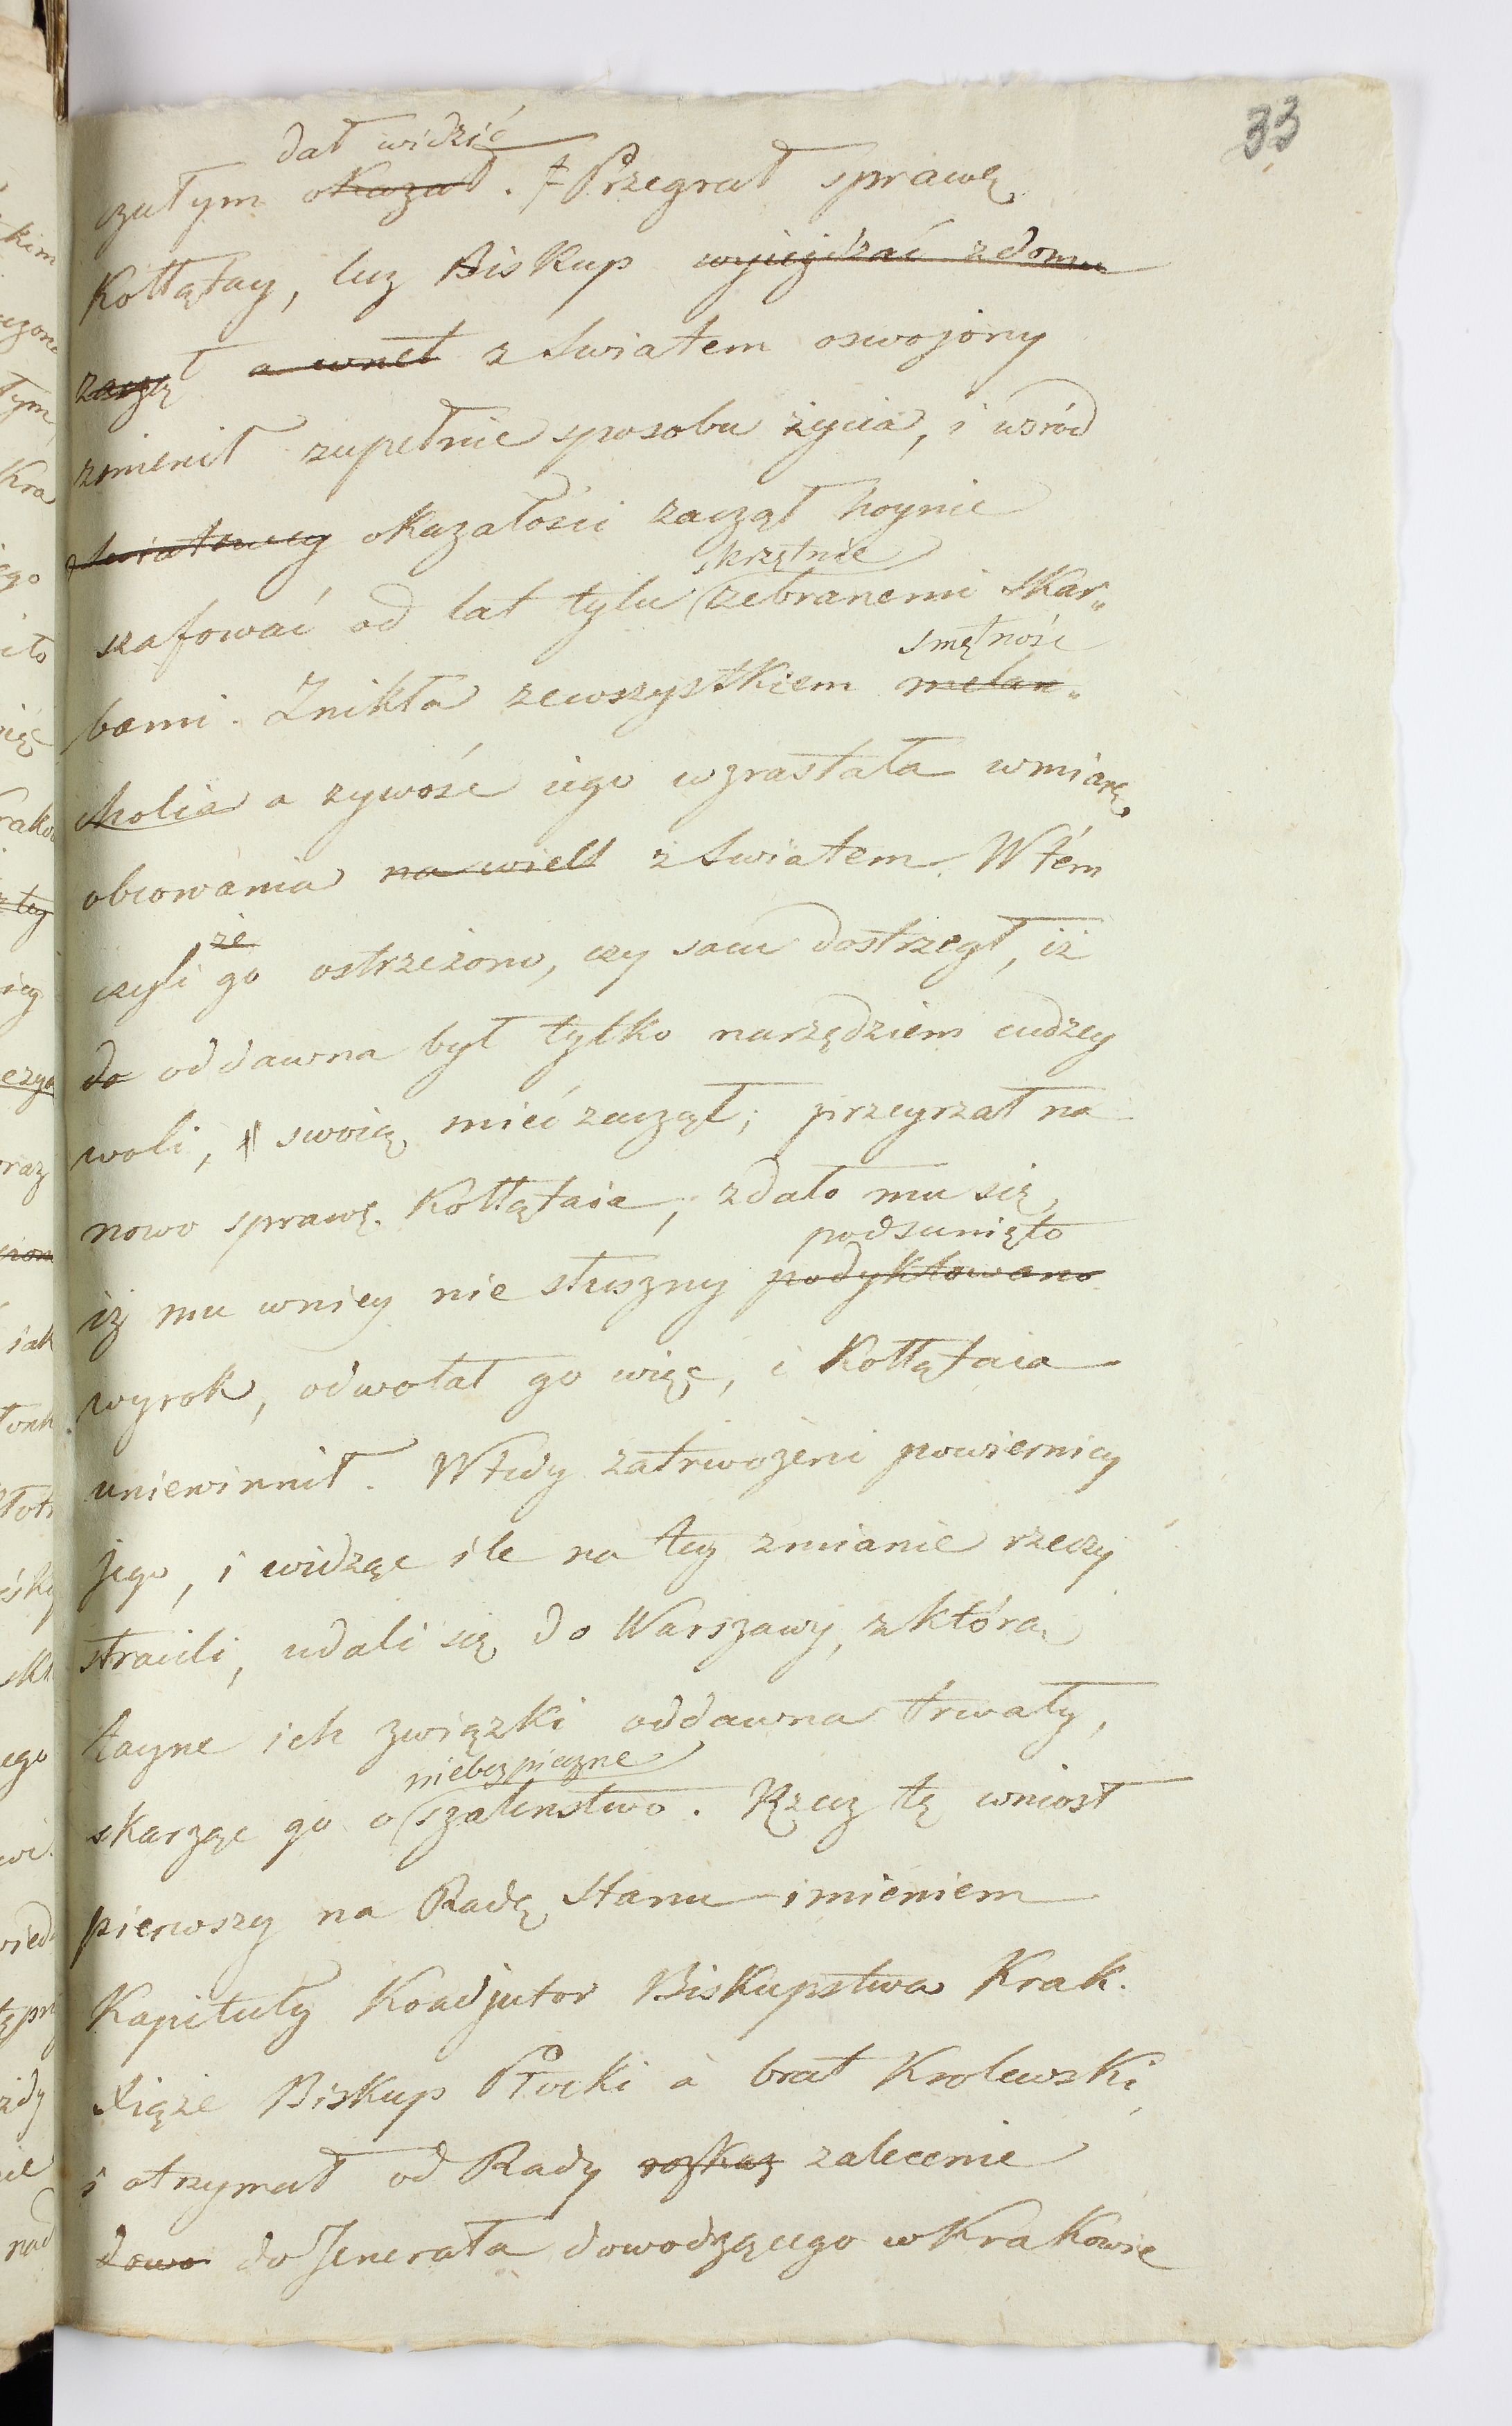 33
dał widzić
czułym okazał. ‡ Przegrał sprawę
Kołłątay, lecz Biskup wyjeżdżać z domu
zaczął a wnet z światem oswojony
zmienił zupełnie sposobu życia, i wśród
światowey okazałości zaczął hoynie
skrzętnie
szafować od lat tylu zebranemi skar„
smętność
bami. Znikła zewszystkiem melan„
cholia a żywość iego wzrastała wmiarę
obcowania na wielk z światem. Wtém
że
czyli go ostrzeżono, czy sam dostrzegł, iż
do oddawna był tylko narzędziem cudzey
woli, swoią mieć zaczął; przeyrzał na
nowo sprawę Kołłątaia, zdało mu się,
podsunięto
iż mu wniey nie słuszny podyktowano
wyrok, odwołał go więc, i Kołłątaia
uniewinnił. Wtedy zatrwożeni powiernicy
jego, i widząc ile na tey zmianie rzeczy
stracili, udali się do Warszawy, z którą
tayne ich związki oddawna trwały,
niebezpieczne
skarżąc go o szaleństwo. Rzecz tę wniosł
pierwszy na Radę Stanu imieniem
Kapituły Koadjutor Biskupstwa Krak.
Xiąże Biskup Płocki a brat Krolewski,
i otrzymał od Rady rozkaz zalecenie
dowo do Jenerała dowodzącego w Krakowie